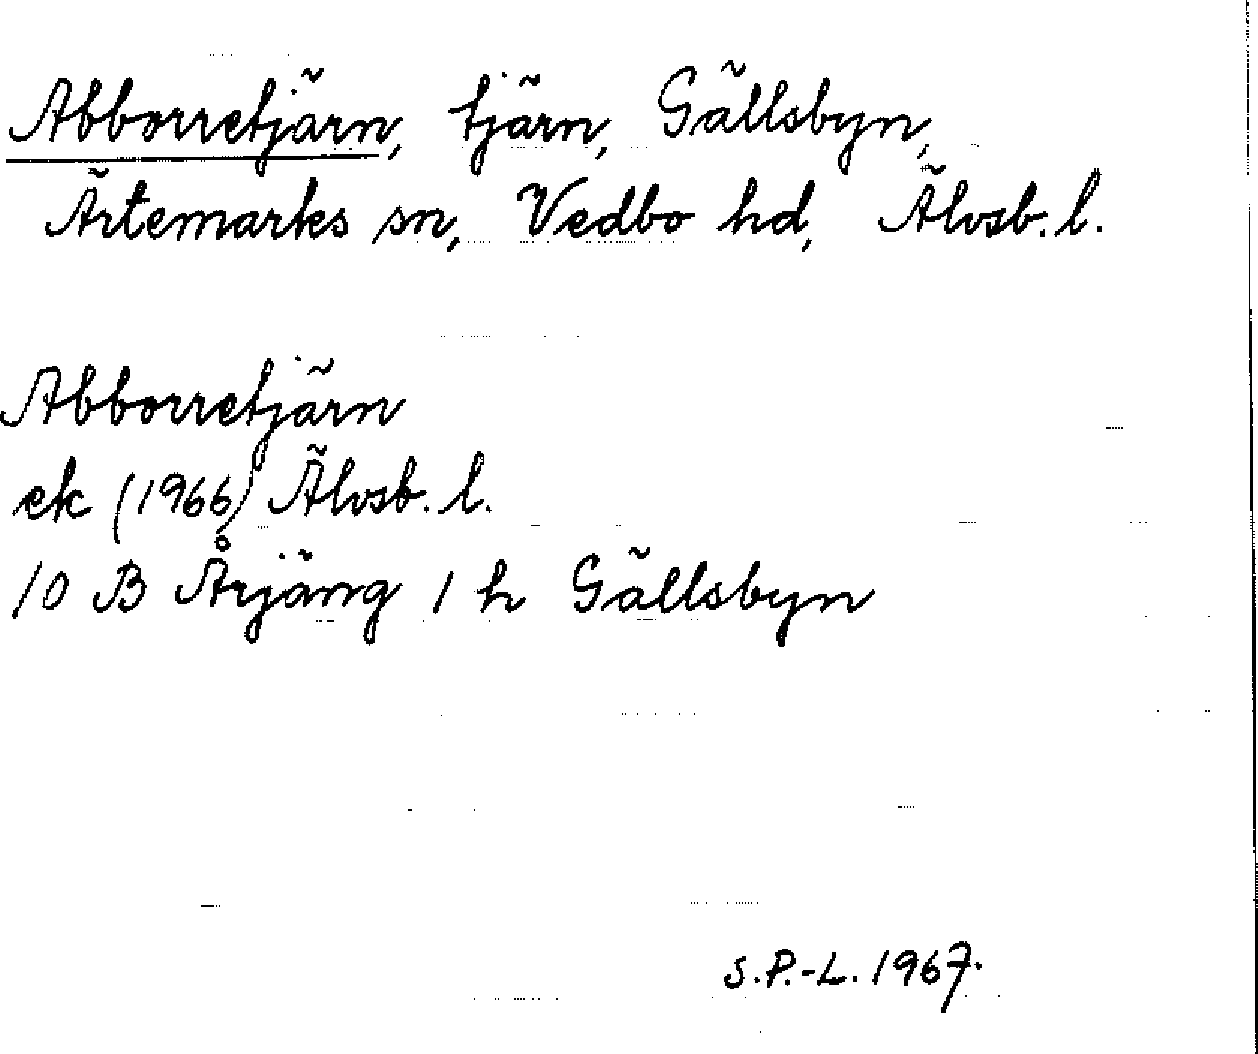 Abborretjärn, tjärn, Gällsbyn,
Ärtemarks sn, Vedbo hd, Älvsb. l.
Abborretjärn
ek (1966) Älvsb. l.
10 B Årjäng 1 h Gällsbyn
S.P.-L. 1967.